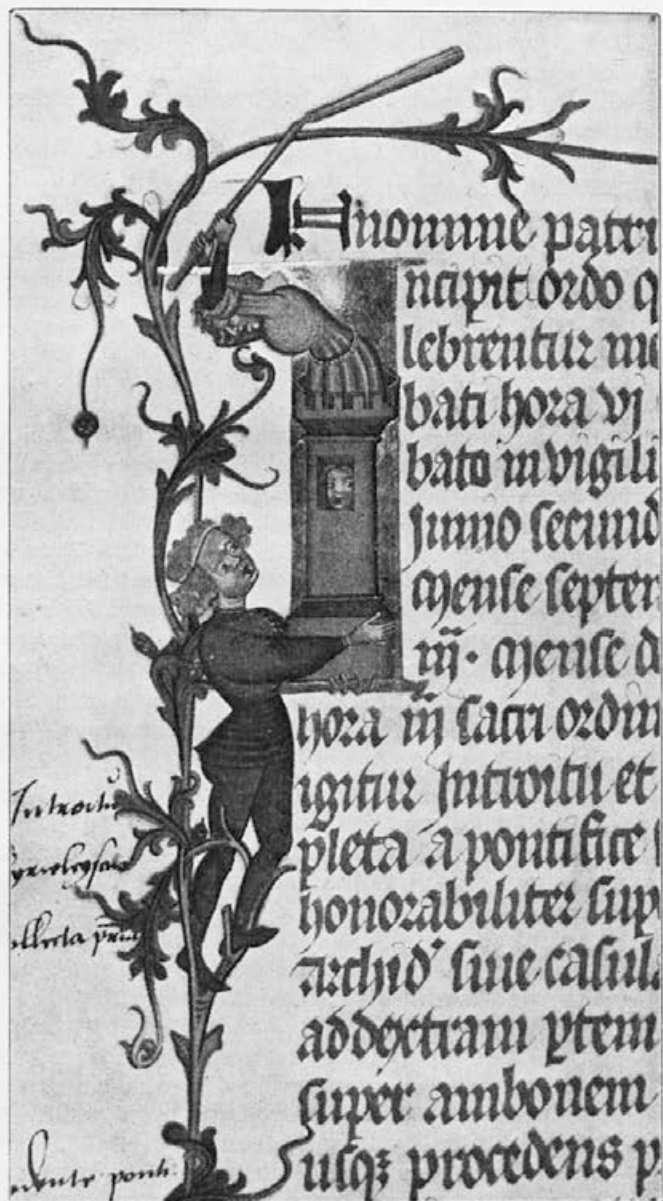 In nomine patri
ncipit ordo q
lebrentur me
bati hora vj
bato in vigili
Junio secund
mense septem
iij · mense d
hora iij sacri ordin
igitur Introitu et
pleta a pontifice
honorabiliter sup
archid' siue casul
ad dextram ptem
super ambonem
usqz procedens p
Introitu
collecta
cedente ponti